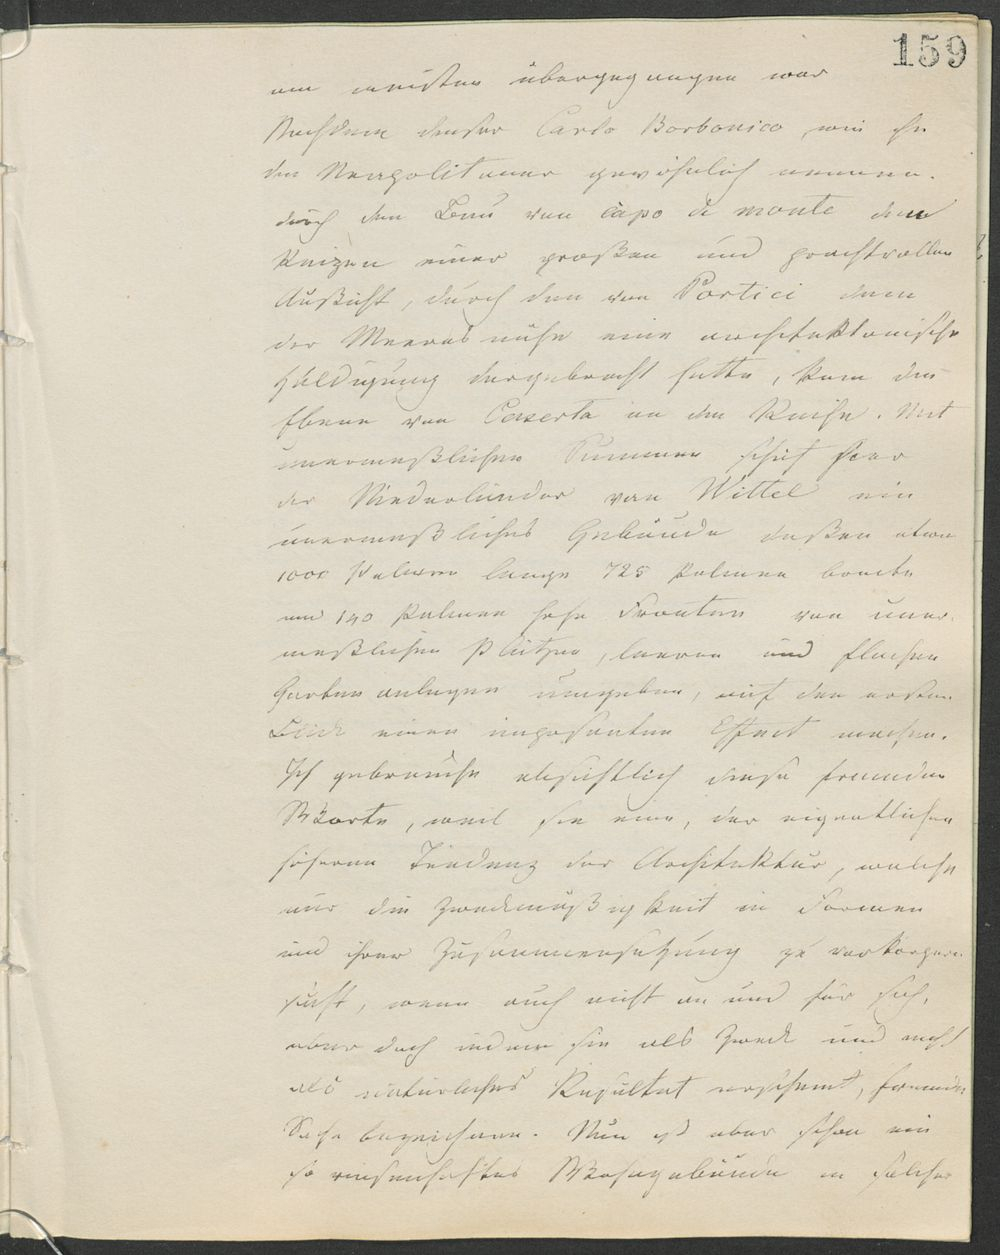 159
am meisten übergegangen war
Nachdem dieser Carlo Borbonico, wie ihn
die Neapolitaner gewöhnlich nennen.
durch den Bau von Capo di monte dem
Reizen einer großen und prachtvollen
Außicht, durch den von Portici dem
der Meeres nähe eine architektonische
Huldigung dargebracht hatte, kam die
Ebene von Caserta an die Reihe. Mit
unermeßlichen Summen schuf hier
der Niederländer van Wittel ein
unermeßliches Gebäude deßen etwa
1000 Palmen lange 725 Palmen breite
und 140 Palmen hohe Fronten von uner-
meßlichen Plätzen, leeren und flachen
Gartenanlagen umgeben, auf den ersten
Blick einen imposanten Effect machen.
Ich gebrauche absichtlich diese fremden
Worte, weil sie eine, der eigentlichen
höheren Tendenz der Architektur, welche
nur die Zweckmäßigkeit in Formen
und ihrer Zusammensetzung zu verkörpern
sucht, wenn auch nicht an und für sich,
aber doch indem sie als Zweck und nicht
als natürliches Resultat erscheint, fremde
Sache bezeichnen. Nun ist aber schon ein
so riesenhaftes Wohngebäude in solcher